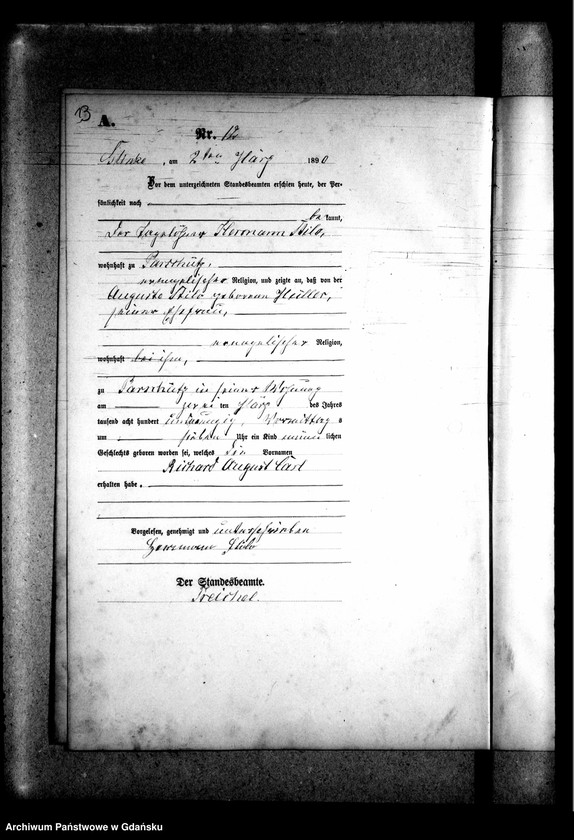 13
A.
Nr. 12
am 2ten März 1890
Vor dem unterzeichneten Standesbeamten erschien heute, der Per-
sönlichkeit nach
be kannt,
der Tagelöhner Hermann Stilo,
wohnhaft zu Parschütz,
evangelischer Religion, und zeigte an, daß von der
Auguste Stilo geborenen Müller,
seiner Ehefrau,
evangelischer Religion,
wohnhaft bei ihm,
zu Parschütz in seiner Wohnung
am zwei ten März des Jahres
tausend acht hundert und neunzig, Vormittag s
um sieben Uhr ein Kind männ lichen
Geschlechts geboren worden sei, welches die Vornamen
Richard August Carl
erhalten habe.
Vorgelesen, genehmigt und unterschrieben
Herrmann Stilo
Der Standesbeamte.
Treichel.
Archiwum Państwowe w Gdańsku